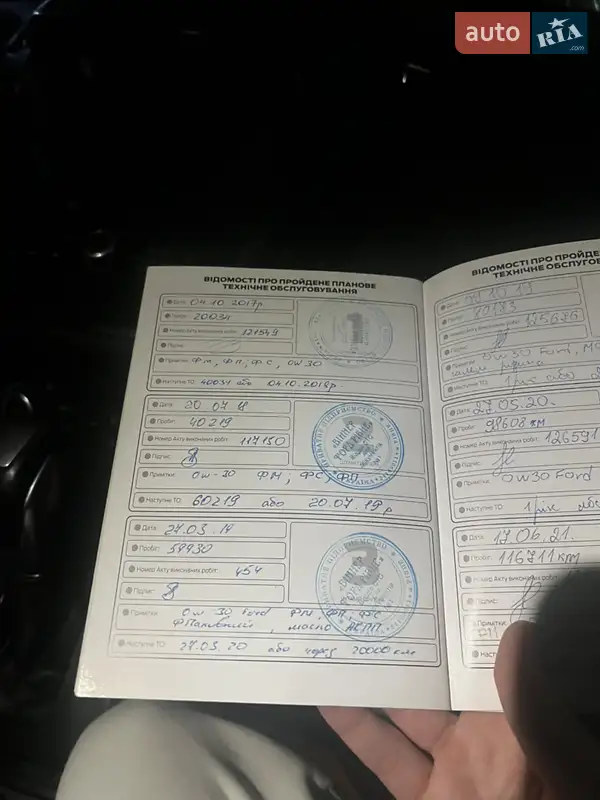 auto RIA .com
ВІДОМОСТІ ПРО ПРОЙДЕНЕ ПЛАНОВЕ
ТЕХНІЧНЕ ОБСЛУГОВУВАННЯ
Дата: 04.10.2017р
Пробіг: 20034
Номер Акту виконаних робіт: 121549
Підпис:
Примітки: ФМ, ФП, ФС, 0W30
Наступне ТО: 40034 або 04.10.2018р.
Дата: 20.07.18
Пробіг: 40219
Номер Акту виконаних робіт: 117150
Підпис:
Примітки: 0W-30 ФМ, ФС, ФП
Наступне ТО: 60219 або 20.07.19р
Дата: 27.03.19
Пробіг: 59930
Номер Акту виконаних робіт: 454
Підпис:
Примітки: 0W30 Ford ФМ, ФП, ФС
ФПаливний, масло АКПП
Наступне ТО: 27.03.20 або через 20000 км
ВІДОМОСТІ ПРО ПРОЙДЕНЕ ПЛ
ТЕХНІЧНЕ ОБСЛУГОВ
Номер Акту виконаних робіт: 125686
Підпис:
Примітки: 0W30 Ford,
Наступне ТО: 1 рік або
Дата: 27.05.20.
Пробіг: 98608 км
Номер Акту виконаних робіт: 126591
Підпис:
Примітки: 0W30 Ford
Наступне ТО: 1 рік або
Дата: 17.06.21.
Пробіг: 116711 км
Номер Акту виконаних робіт:
Підпис:
Примітки: